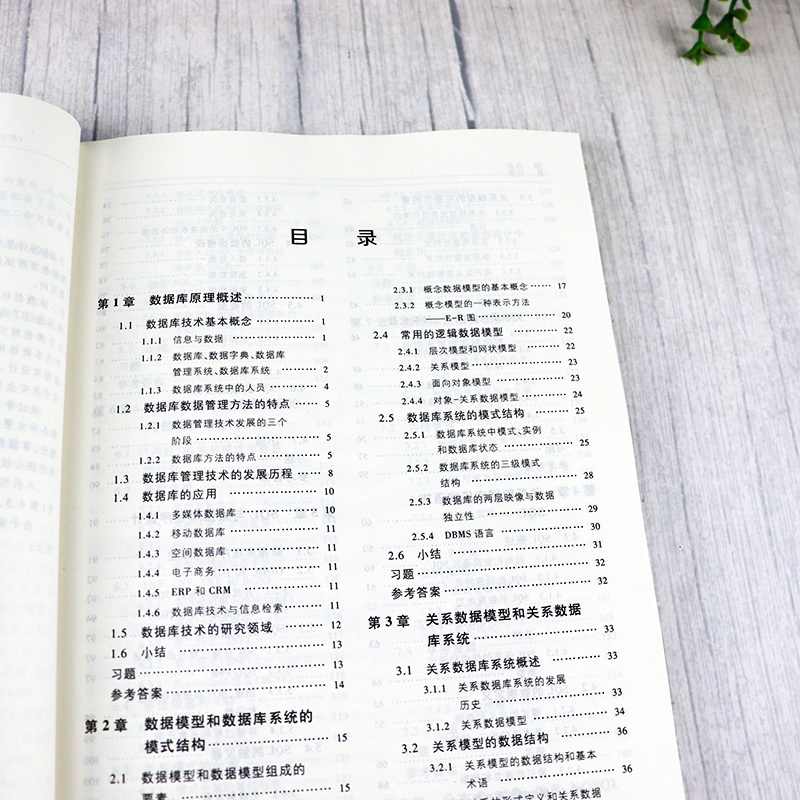 目 录
第1章 数据库原理概述 1
1.1 数据库技术基本概念 1
1.1.1 信息与数据 1
1.1.2 数据库、数据字典、数据库
管理系统、数据库系统 2
1.1.3 数据库系统中的人员 4
1.2 数据库数据管理方法的特点 5
1.2.1 数据管理技术发展的三个
阶段 5
1.2.2 数据库方法的特点 5
1.3 数据库管理技术的发展历程 8
1.4 数据库的应用 10
1.4.1 多媒体数据库 10
1.4.2 移动数据库 11
1.4.3 空间数据库 11
1.4.4 电子商务 11
1.4.5 ERP 和 CRM 11
1.4.6 数据库技术与信息检索 11
1.5 数据库技术的研究领域 12
1.6 小结 13
习题 13
参考答案 14
第2章 数据模型和数据库系统的
模式结构 15
2.1 数据模型和数据模型组成的
要素 15
2.3.1 概念数据模型的基本概念 17
2.3.2 概念模型的一种表示方法
——E-R 图 20
2.4 常用的逻辑数据模型 22
2.4.1 层次模型和网状模型 22
2.4.2 关系模型 23
2.4.3 面向对象模型 23
2.4.4 对象-关系数据模型 24
2.5 数据库系统的模式结构 25
2.5.1 数据库系统中模式、实例
和数据库状态 25
2.5.2 数据库系统的三级模式
结构 28
2.5.3 数据库的两层映像与数据
独立性 29
2.5.4 DBMS 语言 30
2.6 小结 31
习题 32
参考答案 32
第3章 关系数据模型和关系数据
库系统 33
3.1 关系数据库系统概述 33
3.1.1 关系数据库系统的发展
历史 33
3.1.2 关系数据模型 34
3.2 关系模型的数据结构 36
3.2.1 关系模型的数据结构和基本
术语 36
的形式定义和关系数据